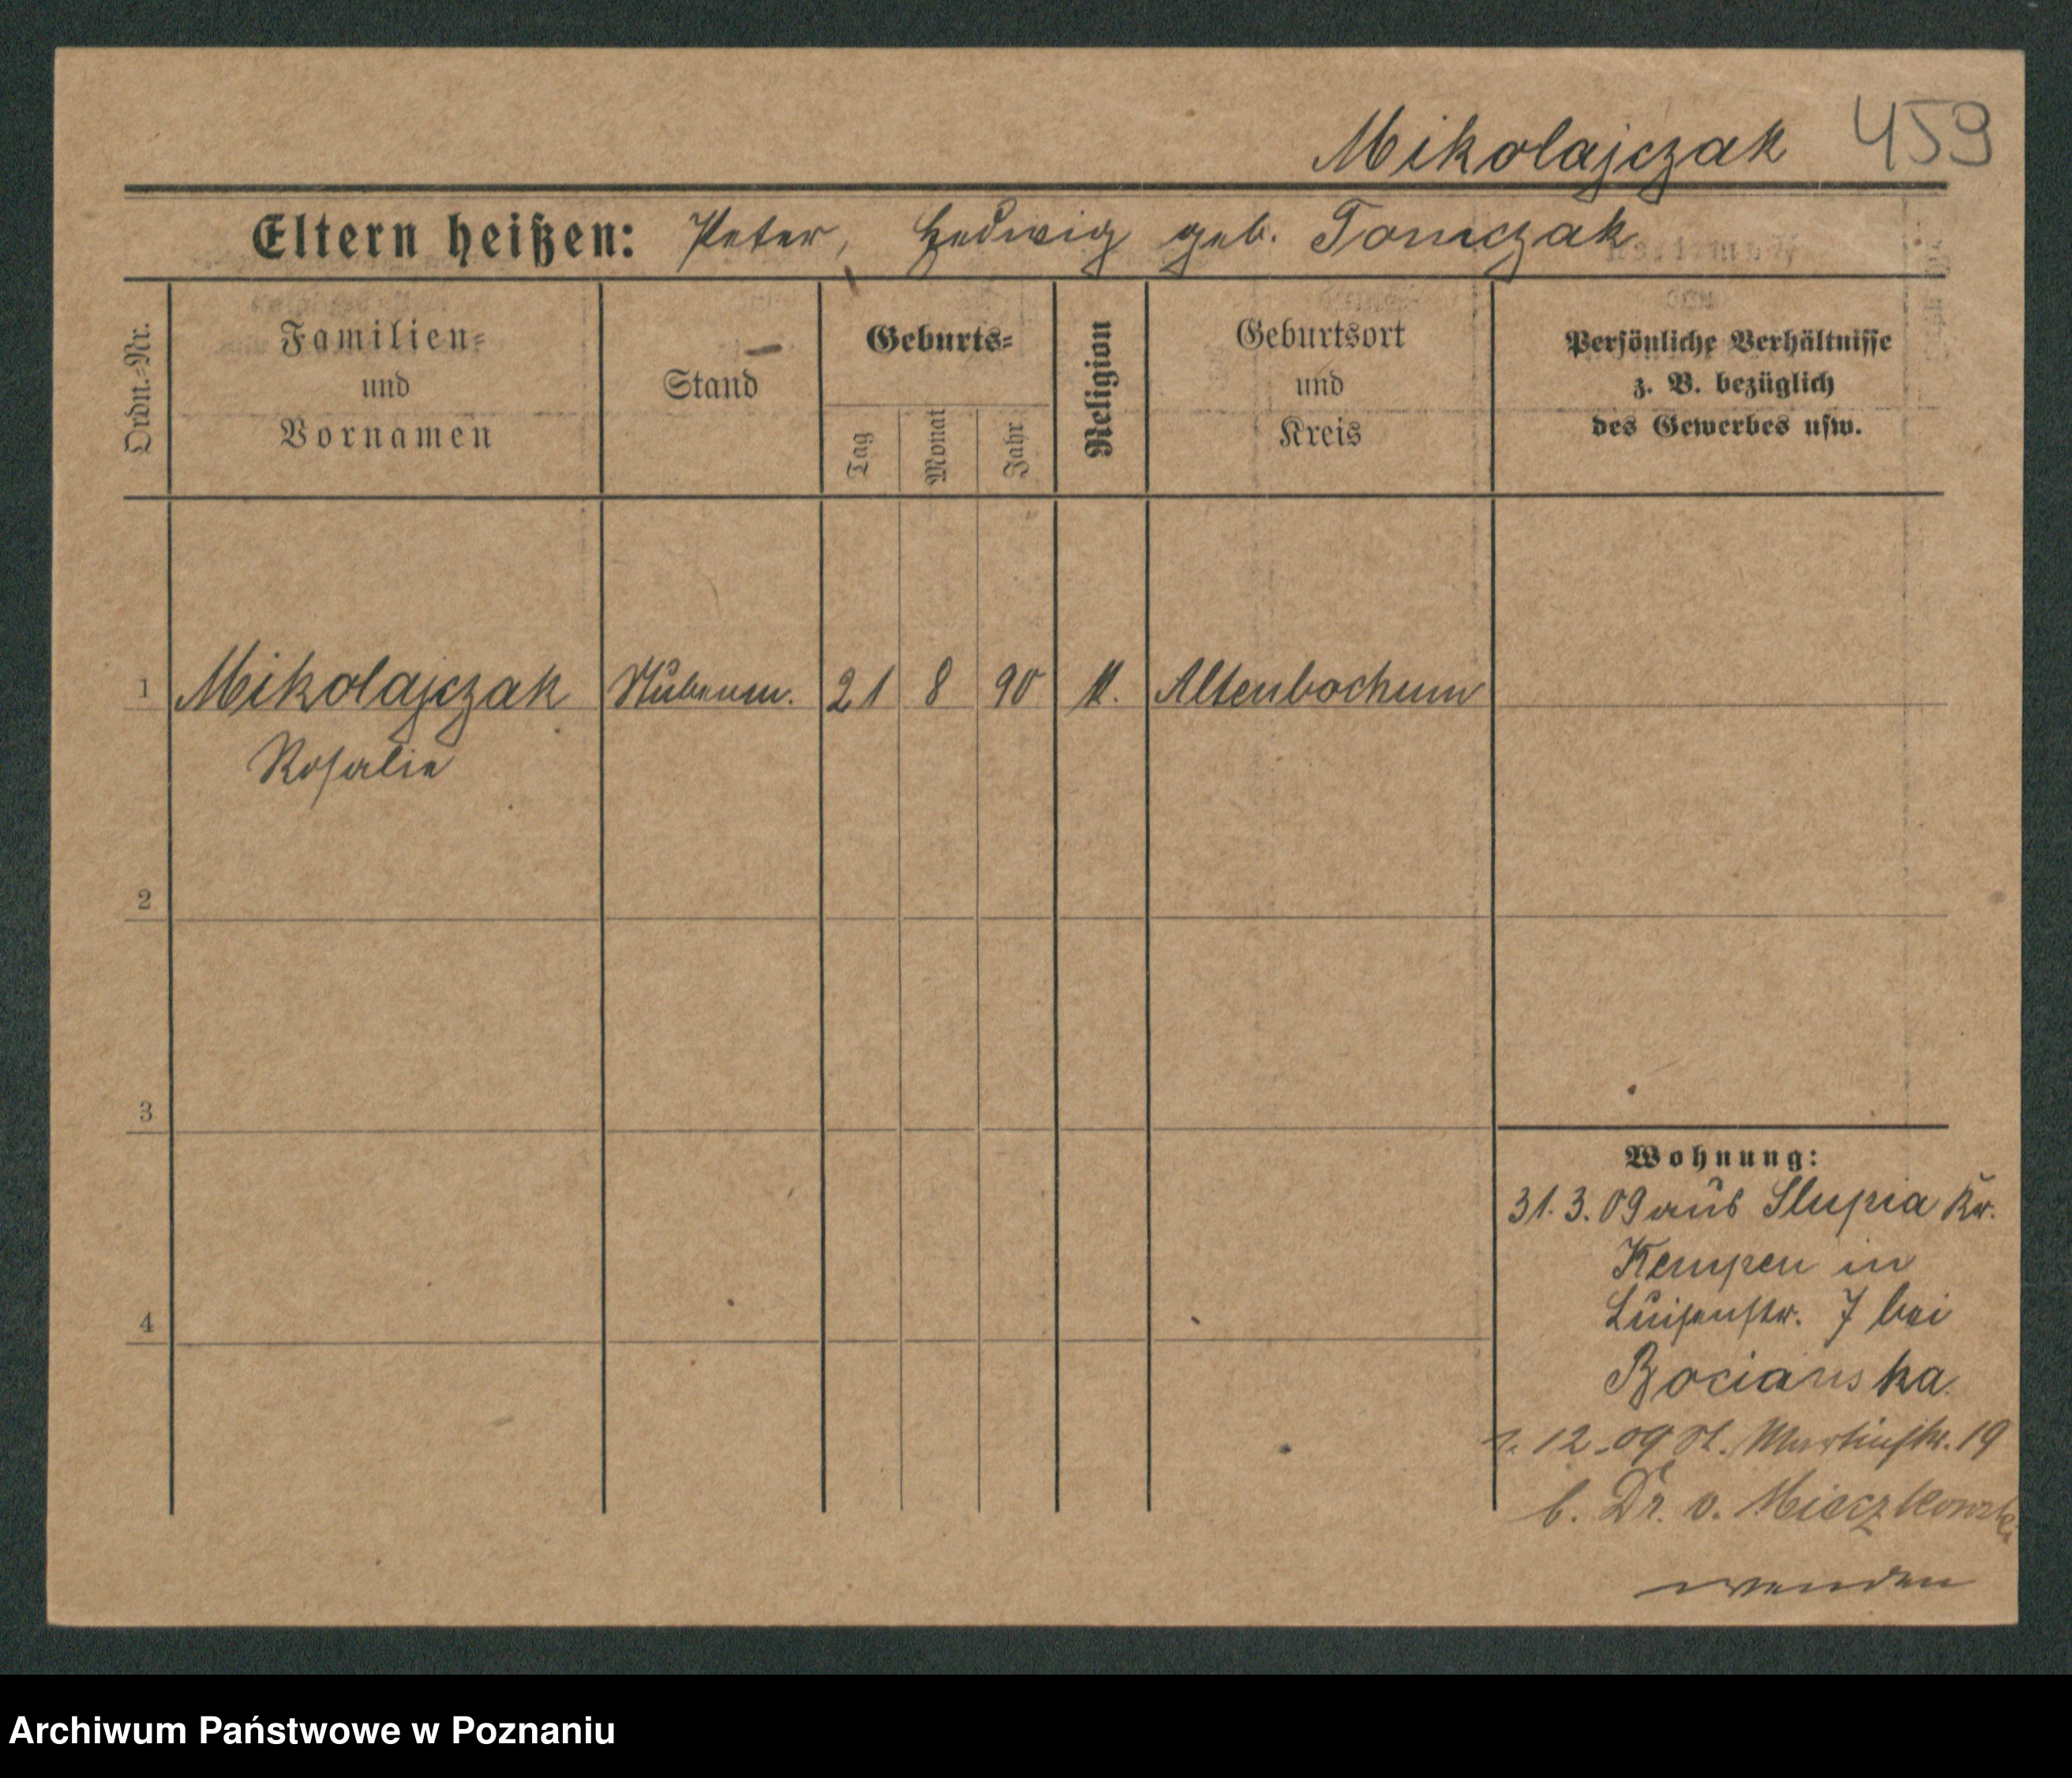 Mikolajczak 459
Eltern heißen: Peter, Hedwig geb. Tomczak
Ordn.-Nr.
Familien-
und
Vornamen
Stand
Geburts-
Tag
Monat
Jahr
Religion
Geburtsort
und
Kreis
Persönliche Verhältnisse
z. B. bezüglich
des Gewerbes usw.
1 Mikolajczak Stubenm. 21 8 90 K. Altenbochum
Rosalie
2
3
4
Wohnung:
31. 3. 09 aus Slupia Kr.
Kempen in
Luisenstr. 7 bei
Bocianska
12. 09 St. Martinstr. 19
b. Dr. v. Mieczkowski
wenden
Archiwum Państwowe w Poznaniu